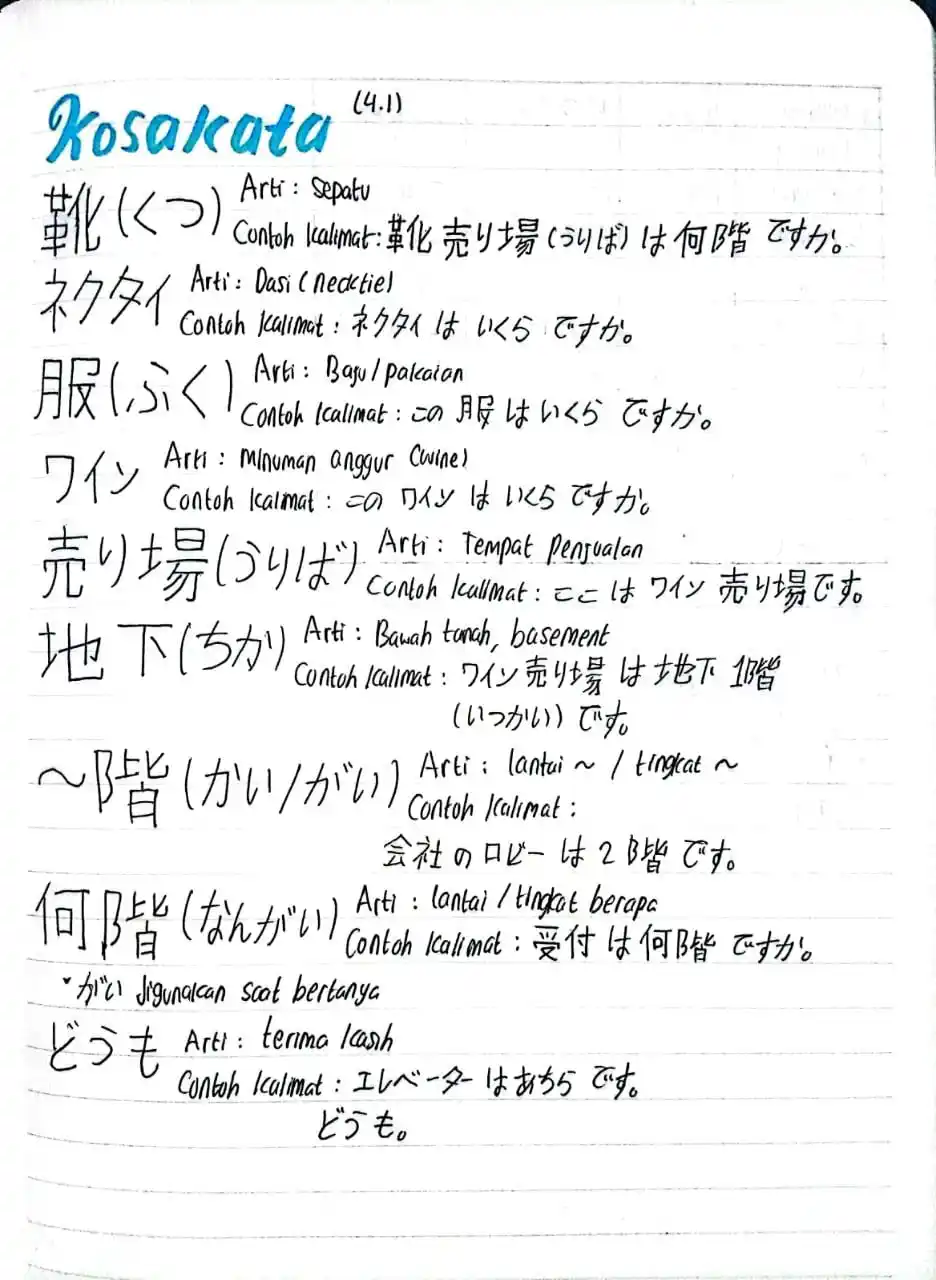 Kosakata (4.1)
靴(くつ) Arti : sepatu
Contoh kalimat : 靴売り場(うりば)は何階ですか。
ネクタイ Arti : Dasi (necktie)
Contoh kalimat : ネクタイはいくらですか。
服(ふく) Arti : Baju/pakaian
Contoh kalimat : この服はいくらですか。
ワイン Arti : minuman anggur (wine)
Contoh kalimat : このワインはいくらですか。
売り場(うりば) Arti : Tempat Penjualan
Contoh kalimat : ここはワイン売り場です。
地下(ちか) Arti : Bawah tanah, basement
Contoh kalimat : ワイン売り場は地下1階
(いっかい)です。
~階(かい/がい) Arti : lantai ~ / tingkat ~
Contoh kalimat :
会社のロビーは2階です。
何階(なんがい) Arti : lantai/tingkat berapa
Contoh kalimat : 受付は何階ですか。
• がい digunakan saat bertanya
どうも Arti : terima kasih
Contoh kalimat : エレベーターはあちらです。
どうも。